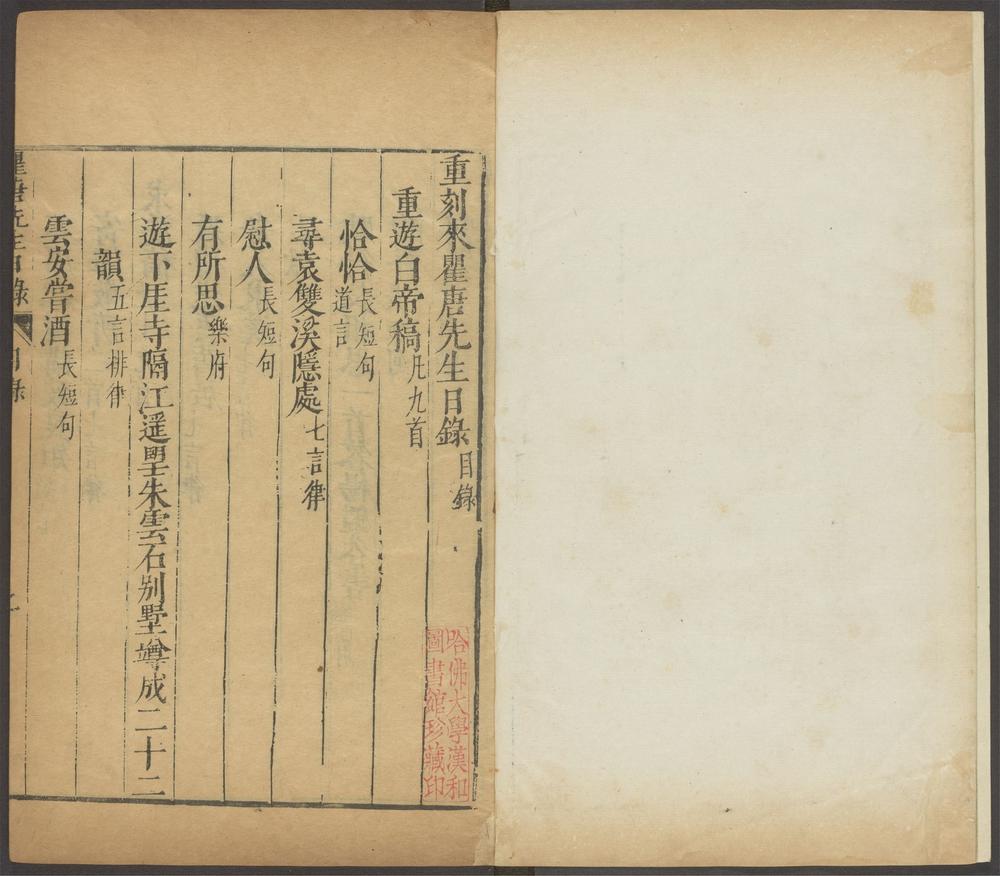 重刻來瞿唐先生日錄目錄
重遊白帝稿凡九首
恰恰長短句道言
尋袁雙溪隱處七言律
慰人長短句
有所思樂府
遊下厓寺隔江遥朢朱雲石别墅𨗴成二十二
韻五言排律
雲安嘗酒長短句
瞿唐先生日錄 目錄
哈佛大學漢和
圖書館珍藏印